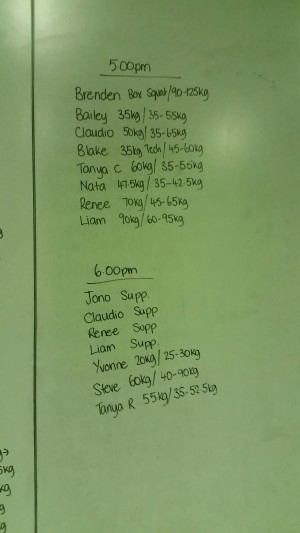 5:00pm
Brenden Box Squat/90-125kg
Bailey 35kg/35-55kg
Claudio 50kg/35-65kg
Blake 35kg Tech/45-60kg
Tanya C 60kg/35-55kg
Nata 47.5kg/35-42.5kg
Renee 70kg/45-65kg
Liam 90kg/60-95kg
6:00pm
Jono Supp.
Claudio Supp
Renee Supp
Liam Supp.
Yvonne 20kg/25-30kg
Steve 60kg/40-90kg
Tanya R 55kg/35-52.5kg
kg
kg